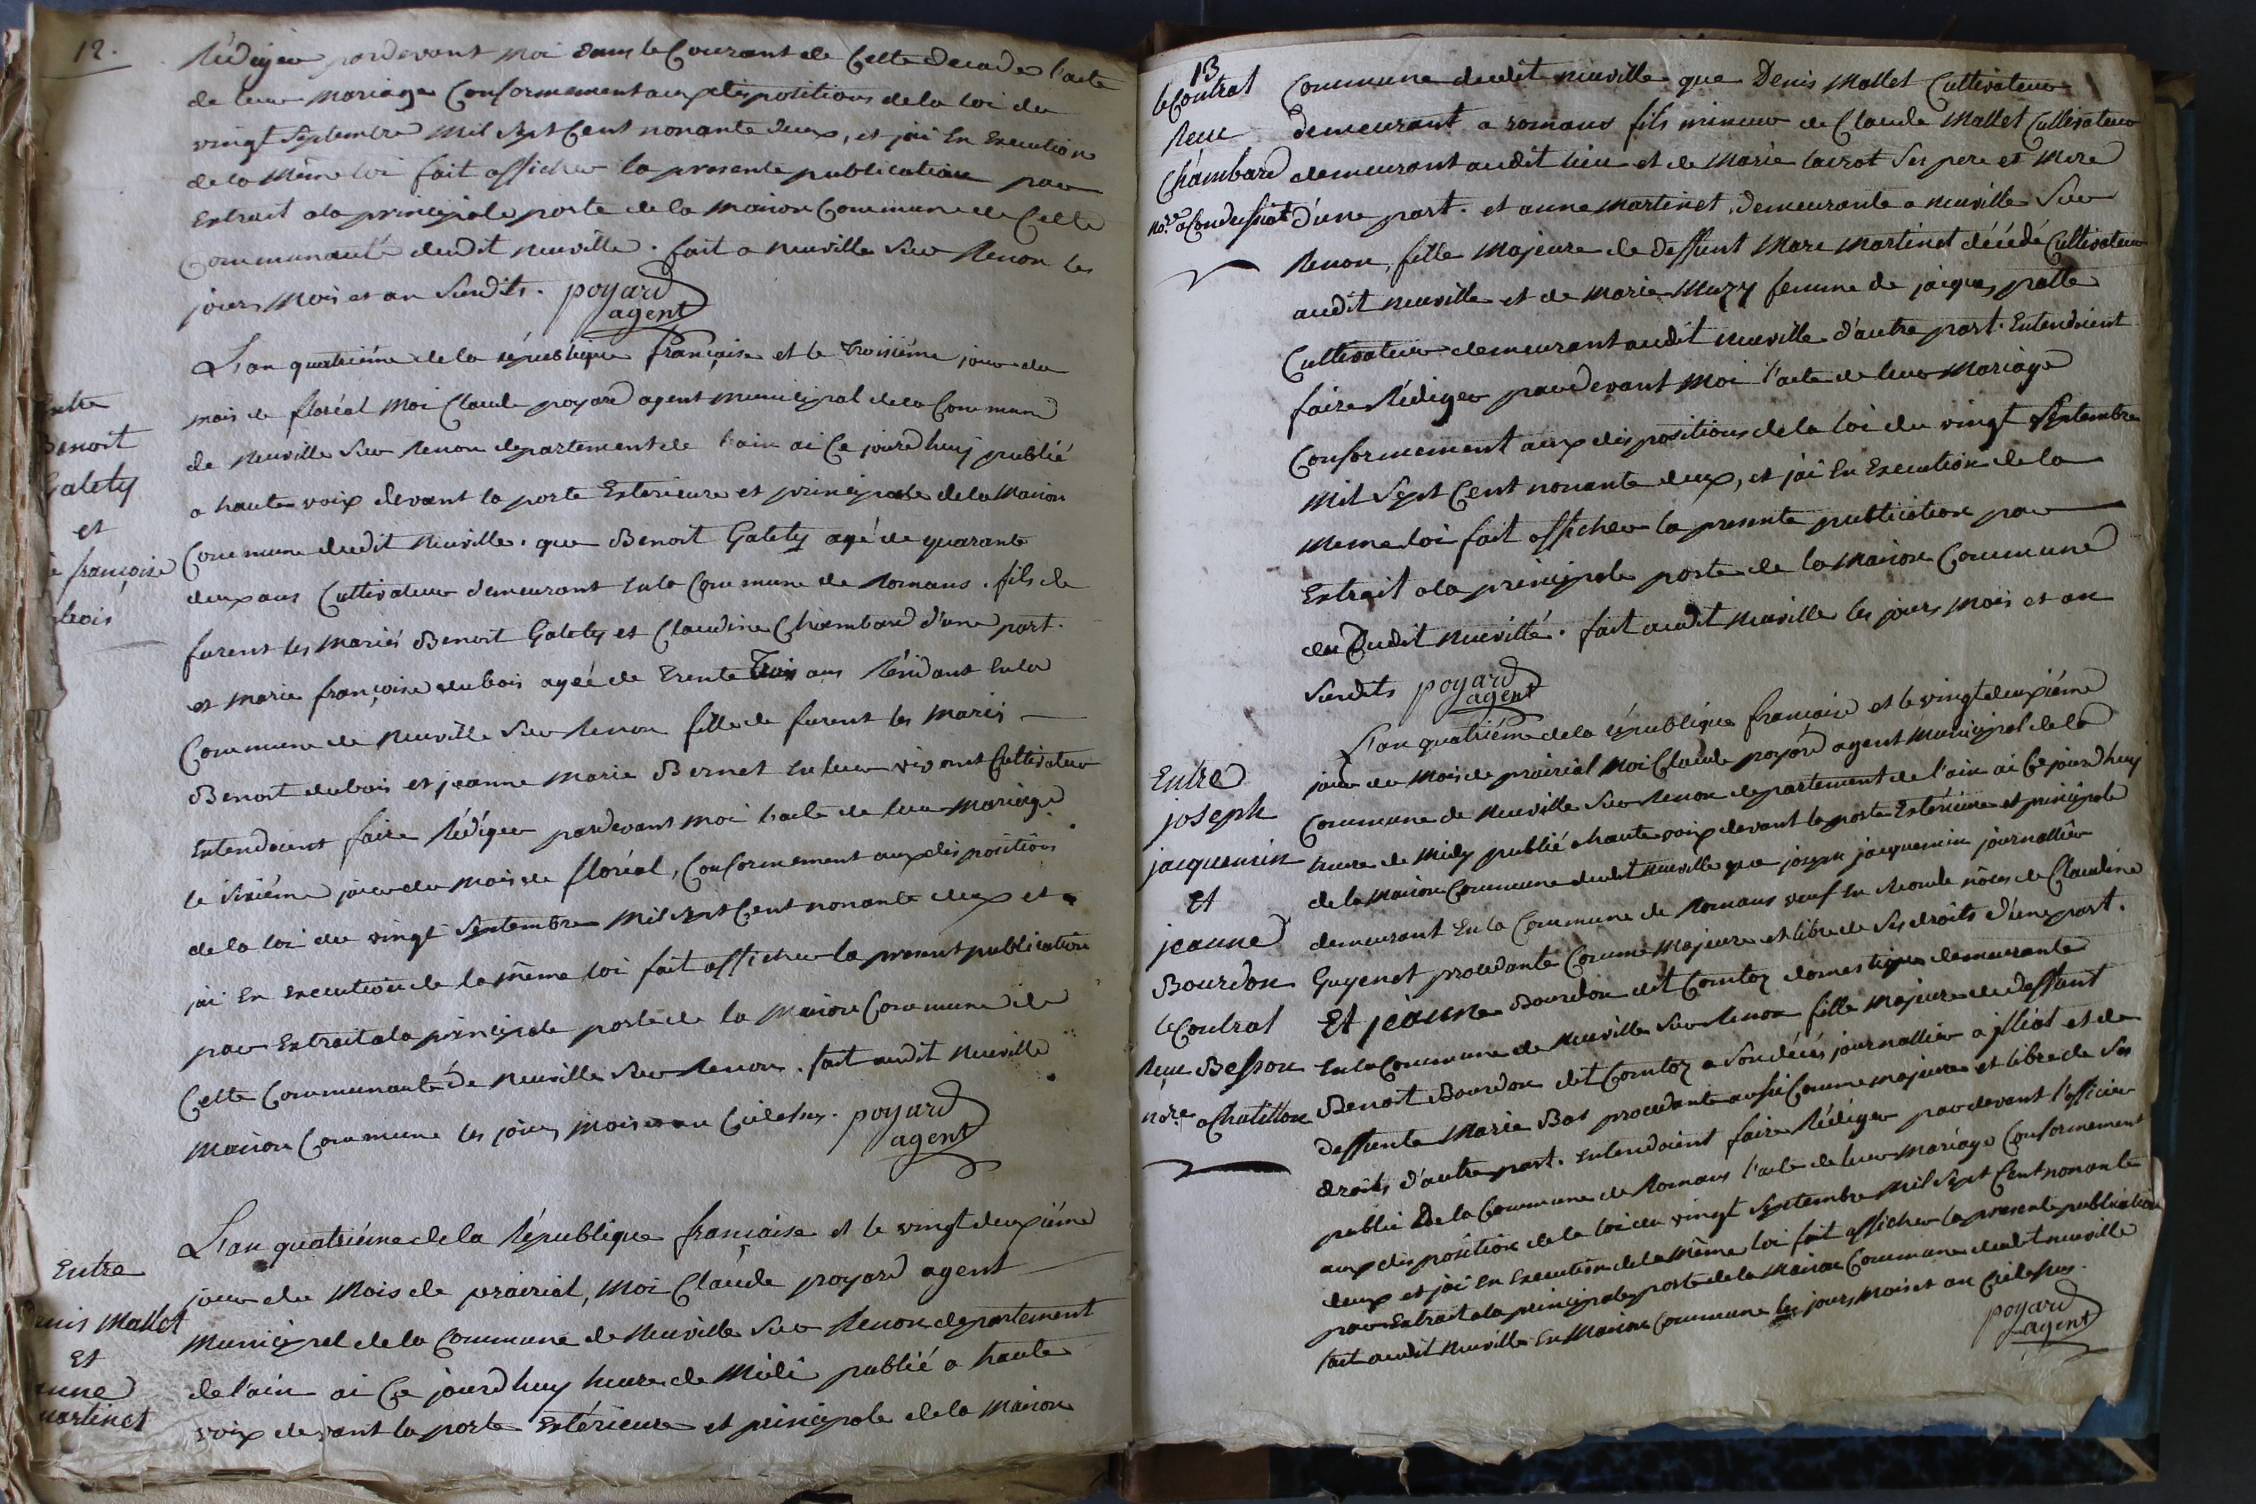 12.
Rédiger pardevant moi dans le Courant de Cette decade l'acte
de leur mariage Conformement aux dispositions de la loi du
vingt Septembre mil sept Cent nonante deux, et jai En Execution
de la même loi fait afficher la presente publication par
Extrait a la principale porte de la maison Commune de Cette
Communauté dudit neuville. fait a neuville Sur Renon les
jours mois et an Susdits. poyard
agent
L'an quatriéme de la république française et le troisiéme jour du
mois de floréal moi Claude poyard agent municipal de la Commune
de neuville Sur Renon departement de l'ain ai Ce jourd huy publié
a haute voix devant la porte Exterieure et principale de la maison
Commune dudit neuville. que Benoit Galety agé de quarante
deux ans Cultivateur demeurant En la Commune de Romans. fils de
furent les mariés Benoit Galety et Claudine Chambard d'une part.
et marie françoise dubois agée de trente trois ans Résidant En la
Commune de neuville Sur Renon fille de furent les mariés
Benoit dubois et jeanne marie Bernet En leur vivant Cultivateur
Entendoient faire Rédiger pardevant moi l'acte de leur mariage
le sixiéme jour du mois de floréal, Conformement aux dispositions
de la loi du vingt Septembre mil sept Cent nonante deux et
jai En execution de la même loi fait afficher la present publication
par Extrait a la principale porte de la maison Commune de
Cette Communauté de neuville Sur Renon. fait audit neuville
maison Commune les jours mois et an Cidessus. poyard
agent
L'an quatriéme de la République francaise et le vingt deuxiéme
jour du mois de prairial, moi Claude poyard agent
municipal de la Commune de neuville Sur Renon departement
de l'ain ai Ce jourd huy heure de midi publié a haute
voix devant la porte Extérieure et principale de la maison
Entre
Benoit
Galety
et
françoise
Entre
Mallet
Et
martinet
13
le Contrat
Reçu
Chambard
nore. a Condessiat
Commune dudit neuville que Denis Mallet Cultivateur
demeurant a romans fils mineur de Claude Mallet Cultivateur
demeurant audit lieu et de Marie lavrot Ses pere et Mere
d'une part. et anne Martinet, demeurante a neuville Sur
Renon, fille Majeure de deffunt Marc Martinet décédé Cultivateur
audit neuville et de Marie Muzy femme de jacques patte
Cultivateur demeurant audit neuville d'autre part. Entendoient
faire Rédiger pardevant Moi l'acte de leur Mariage
Conformement aux dispositions de la loi du vingt Septembre
Mil Sept Cent nonante deux, et jai En Execution de la
Meme loi fait afficher la presente publication par
Extrait a la principale porte de la Maison Commune
du dudit neuville. fait audit neuville les jours Mois et an
Susdits poyard
agent
L'an quatriéme de la république francaise et le vingt deuxiéme
jour du Mois de prairial Moi Claude poyard agent Municipal de la
Commune de neuville Sur Renon departement de l'ain ai Ce jourd huy
heure de Midy publié a haute voix devant la porte Extérieure et principale
de la Maison Commune dudit neuville que joseph jacquemin journallier
demeurant En la Commune de Romans veuf En Seconde nôces de Claudine
Guyenet procedante Comme Majeure et libre de Ses droits d'une part.
Et jeanne Bourdon dit Comtoz domestique demeurante
En la Commune de neuville Sur Renon fille Majeure de deffunt
Benoit Bourdon dit Comtoz a Son décès journallier a jlliat et de
deffunte Marie Bas procedante aussi Comme majeure et libre de Ses
droits d'autre part. Entendoient faire Rédiger pardevant l'officier
public De la Commune de Romans l'acte de leur Mariage Conformement
aux disposition de la loi du vingt Septembre Mil Sept Cent nonante
deux et jai En Execution de la Même loi fait afficher la presente publication
par Extrait a la principale porte de la Maison Commune dudit neuville
fait audit neuville En Maison Commune les jours Mois et an Cidessus.
poyard
agent
Entre
joseph
jacquemin
et
jeanne
Bourdon
le Contrat
Reçu Besson
nore. a Chatillon